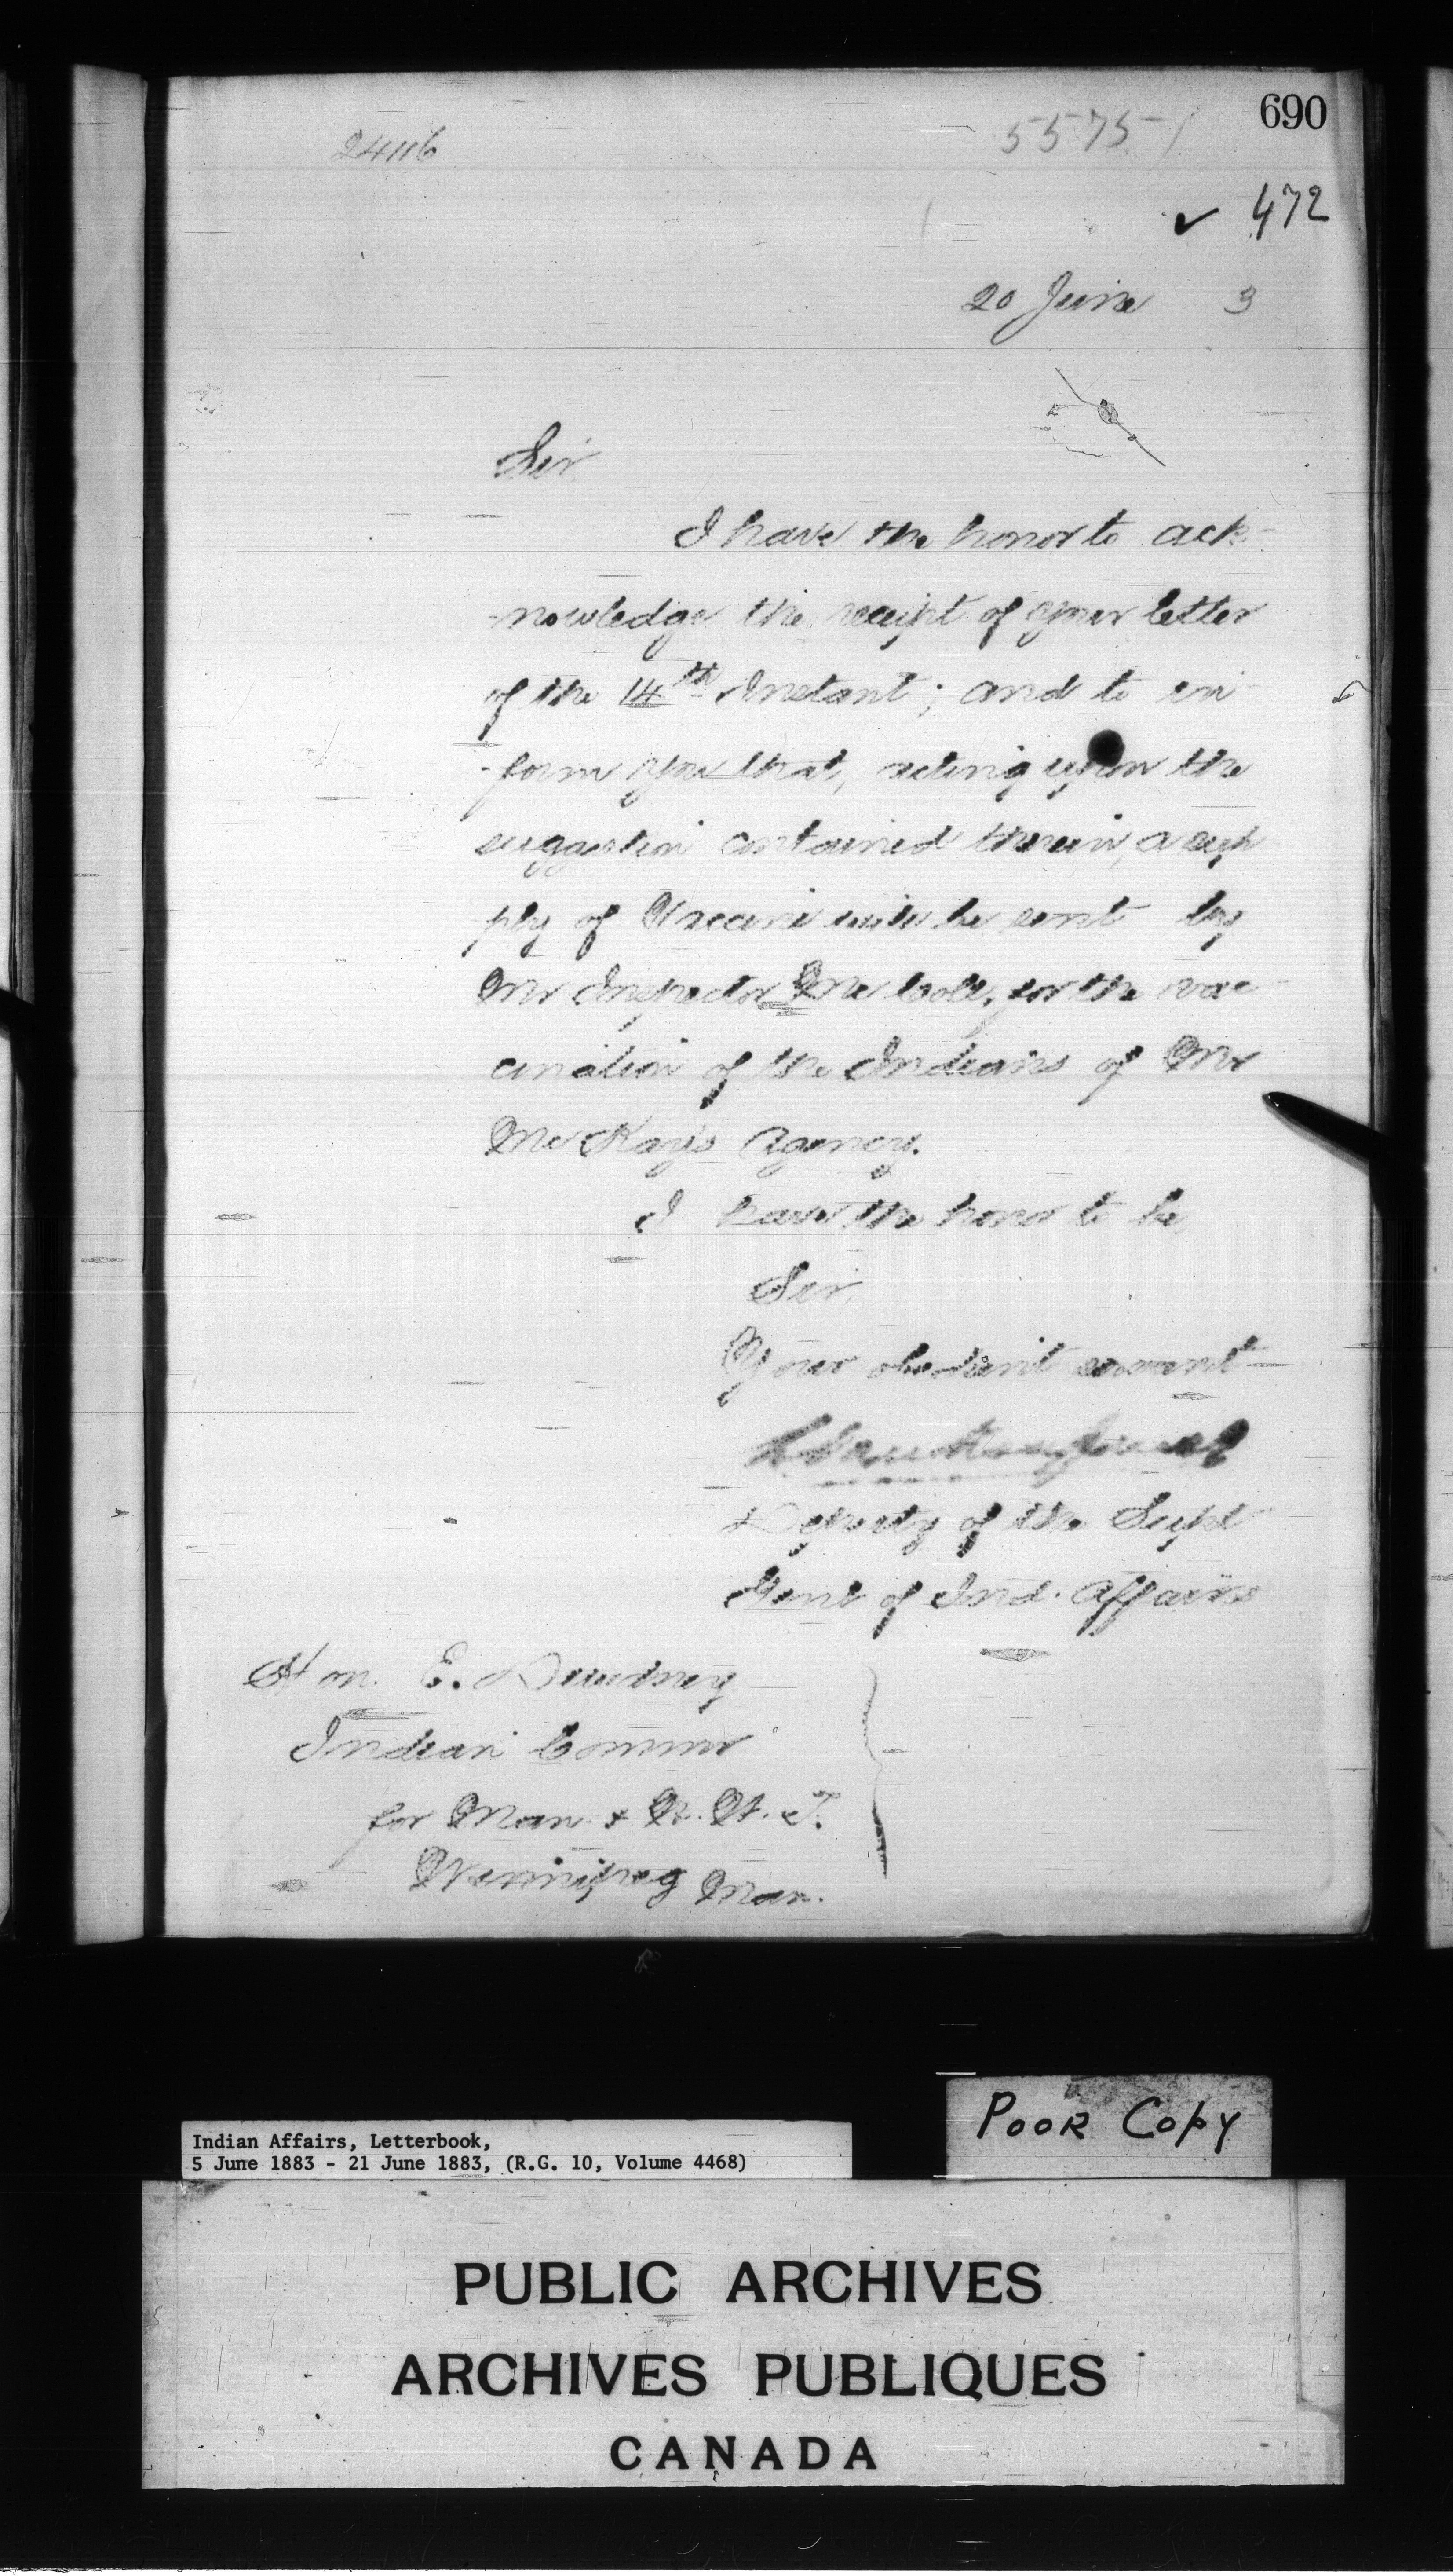 690
24116
5575
✓ 472
20 June 3
Sir
I have the honor to ack-
-nowledge the receipt of your letter
of the 14th Instant; and to in-
-form you that, acting upon the
suggestion contained therein, a sup-
ply of Vaccine will be sent by
Mr Inspector McColl, for the vac-
cination of the Indians of Mr
McKay's Agency.
I have the honor to be,
Sir,
Your obedient servant
Deputy of the Supt
Genl of Ind. Affairs
Hon. E. Dewdney
Indian Commr
for Man. & N. W. T.
Winnipeg Man.
Poor Copy
Indian Affairs, Letterbook,
5 June 1883 - 21 June 1883, (R.G. 10, Volume 4468)
PUBLIC ARCHIVES
ARCHIVES PUBLIQUES
CANADA